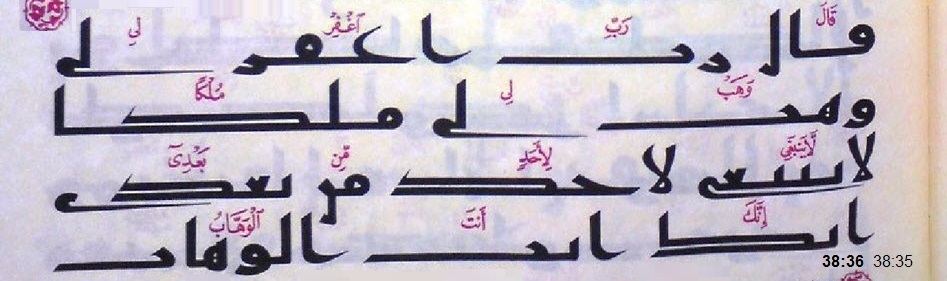 قَالَ رَبِّ ٱغْفِرْ لِي
قال رب اغفر لي
وَهَبْ لِي مُلْكًا
وهب لي ملكا
لَّايَنۢبَغِي لِأَحَدٍ مِّنۢ بَعْدِىٓ
لا ينبغي لاحد من بعدي
إِنَّكَ أَنتَ ٱلْوَهَّابُ
انك انت الوهاب
38:36 38:35